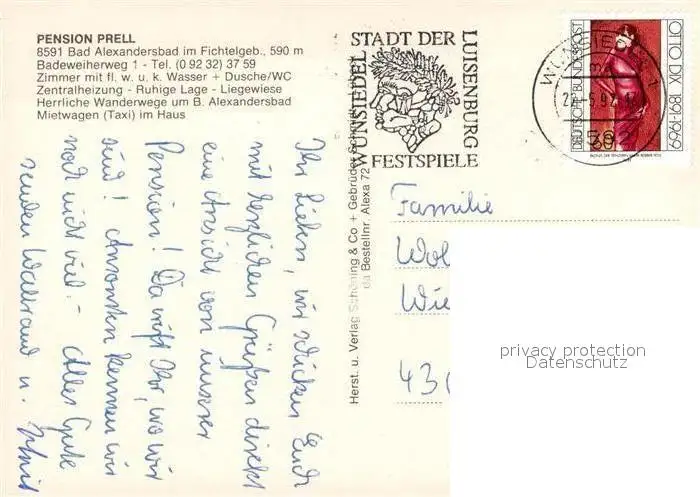 PENSION PRELL
8591 Bad Alexandersbad im Fichtelgeb., 590 m
Badeweiherweg 1 - Tel. (0 92 32) 37 59
Zimmer mit fl. w. u. k. Wasser + Dusche/WC
Zentralheizung - Ruhige Lage - Liegewiese
Herrliche Wanderwege um B. Alexandersbad
Mietwagen (Taxi) im Haus
Ihr Lieben, wir schicken Euch
mit herzlichen Grüßen direkt
eine Ansicht von unserer
Pension! Da wißt Ihr, wo wir
sind! Ansonsten kennen wir
noch nicht viel. - Alles Gute
senden Waltraud u.
Herst. u. Verlag Schöning & Co + Gebrüder Schmidt
Bestellnr. Alexa 72
WUNSIEDEL
STADT DER
FESTSPIELE
LUISENBURG
WUNSIEDEL 1
DEUTSCHE BUNDESPOST
60
OTTO DIX 1891-1969
Familie
Wol
Wie
43
privacy protection
Datenschutz